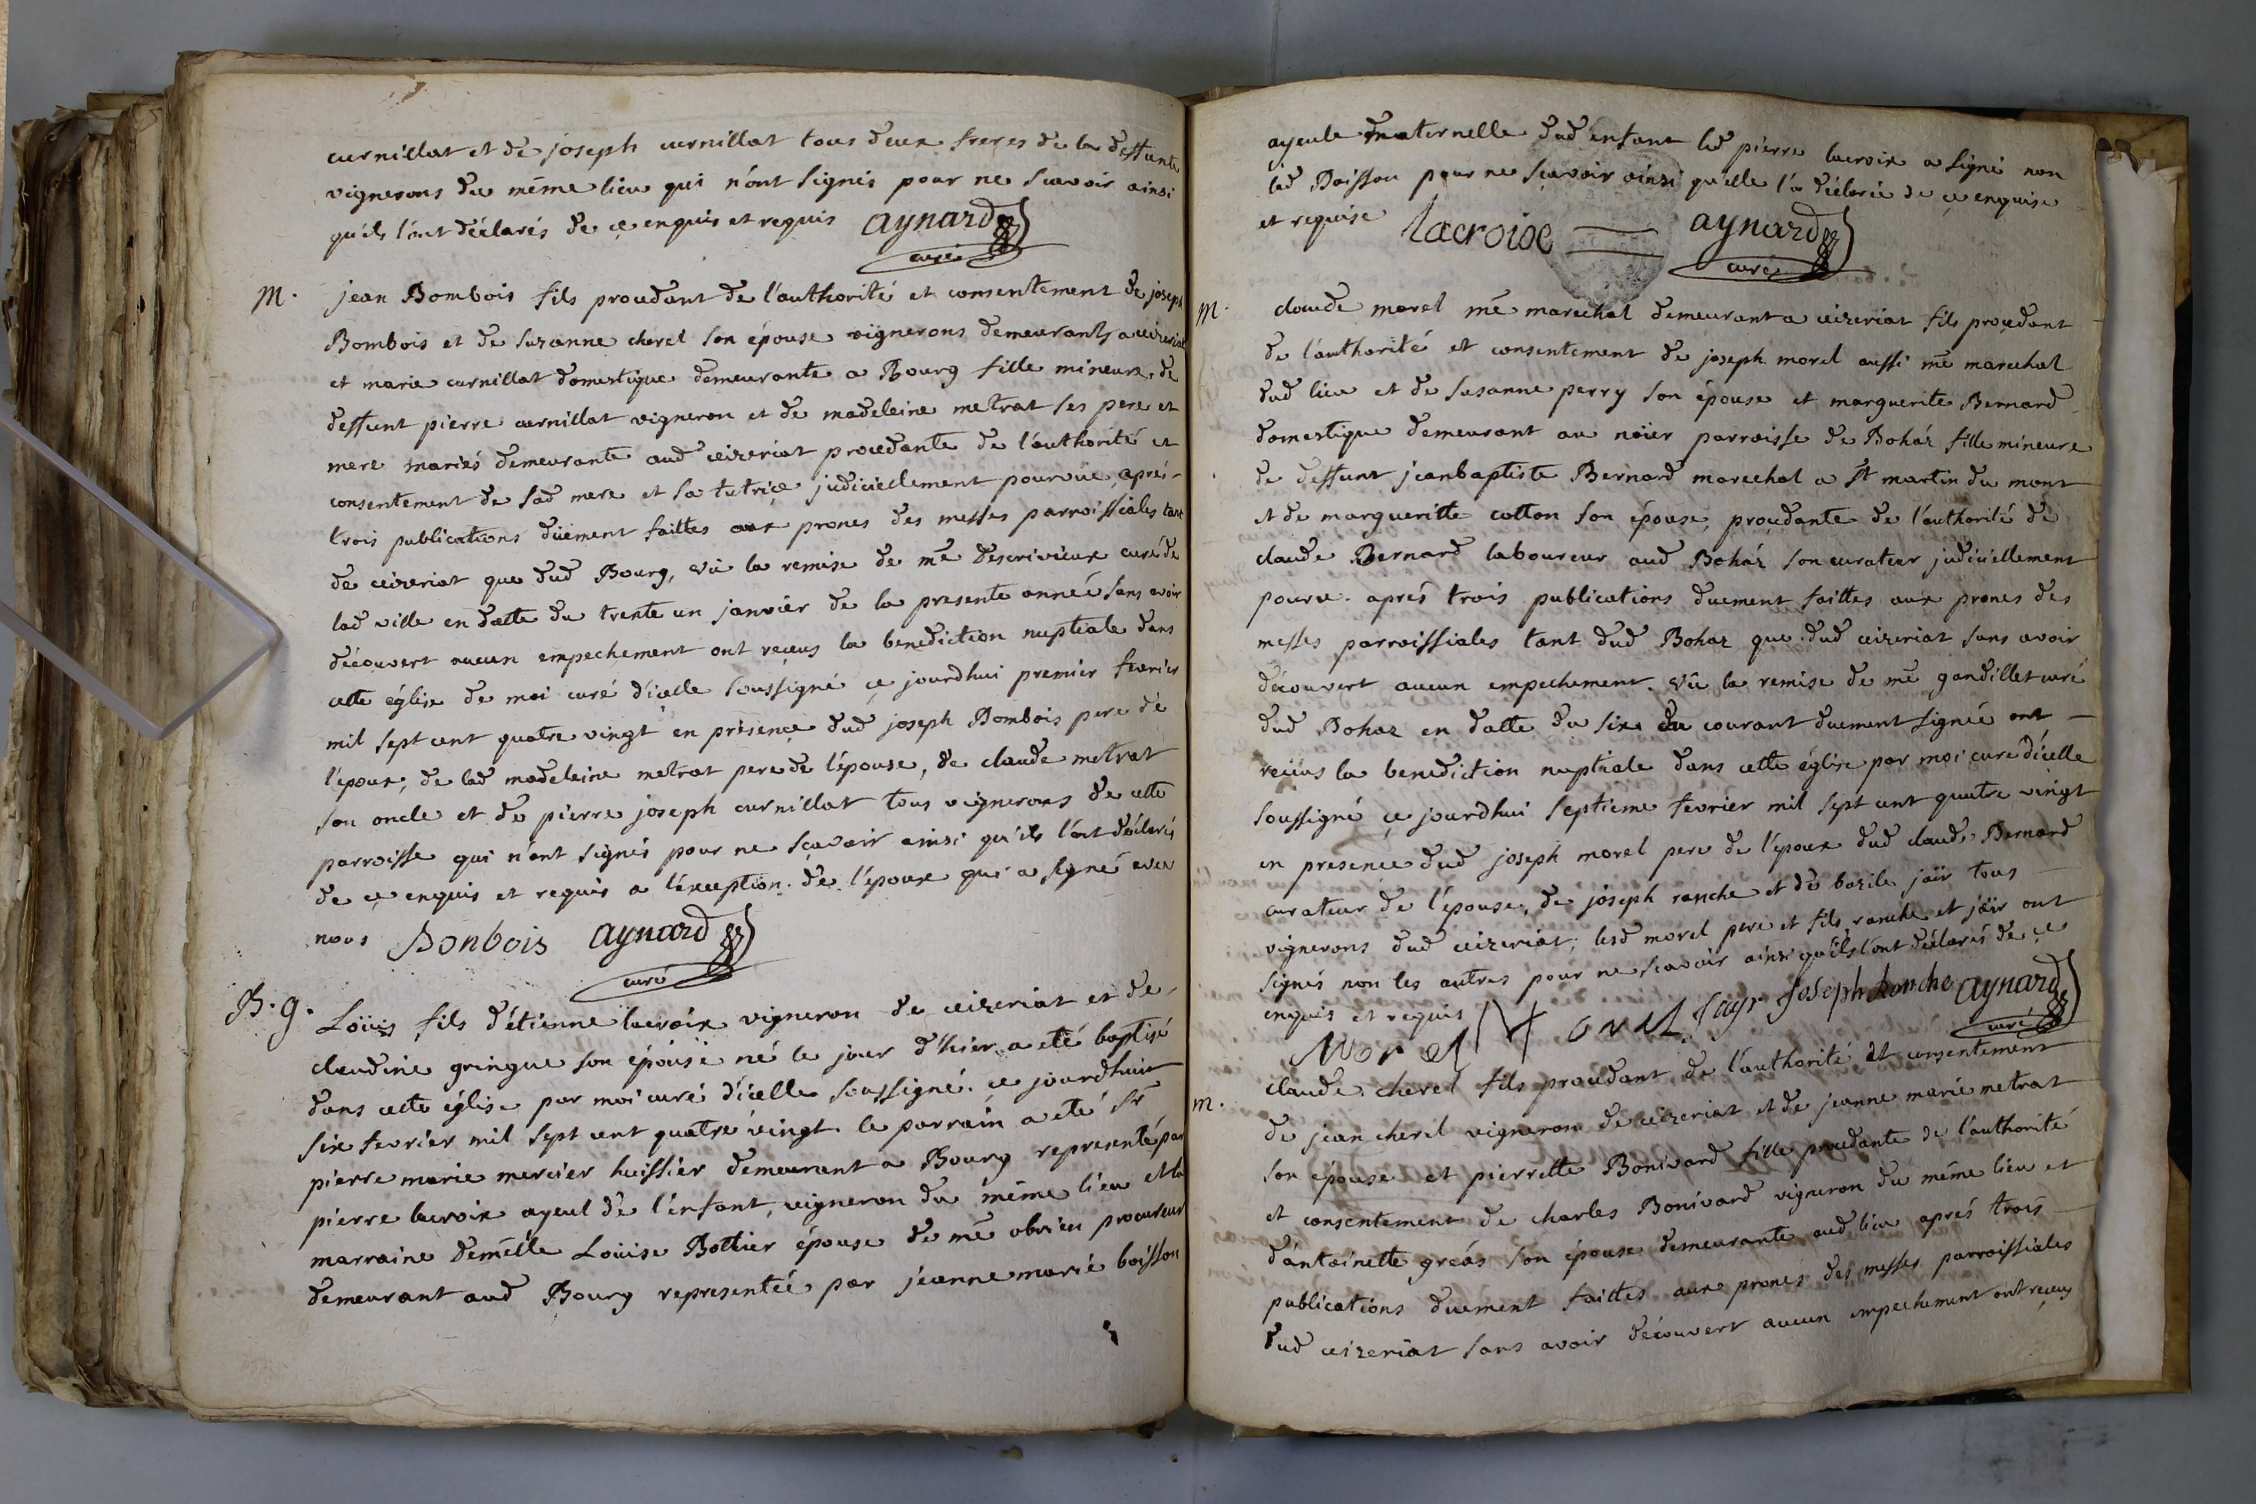 curnillat et de joseph curnillat tous deux freres de la deffunte
vignerons du même lieu qui n'ont signés pour ne scavoir ainsi
qu'ils l'ont déclarés de ce enquis et requis aynard
curé
M. jean Bombois fils procedant de l'authorité et consentement de joseph
Bombois et de suzanne cherel son épouse vignerons demeurants a ceizeriat
et marie curnillat domestique demeurante a Bourg fille mineure de
deffunt pierre curnillat vigneron et de madeleine metrat ses pere et
mere mariés demeurante aud ceizeriat procedante de l'authorité et
consentement de sad mere et sa tutriçe judiciellement pourvüe, aprés
trois publications düement faittes aux prones des messes parroissiales tant
de ceizeriat que dud Bourg, vû la remise de me descrivieux curé de
lad ville en datte du trente un janvier de la presente année sans avoir
découvert aucun empechement ont reçus la benediction nuptiale dans
cette église de moi curé d'icelle soussigné çe jourdhui premier fevrier
mil sept cent quatre vingt en présençe dud joseph Bombois pere de
l'époux, de lad madeleine metrat pere de l'épouse, de claude metrat
son oncle et de pierre joseph curnillat tous vignerons de cette
parroisse qui n'ont signés pour ne sçavoir ainsi qu'ils l'ont déclarés
de ce enquis et requis a l'éxception de l'époux qui a signé avec
nous Bonbois aynard
curé
B. g. Loüis fils d'étienne lacroix vigneron de ceizeriat et de
claudine gringue son épouse né le jour d'hier a eté baptisé
dans cette église par moi curé d'icelle soussigné ce jourdhuit
six fevrier mil sept cent quatre vingt. le parrain a eté sr
pierre marie mercier huissier demeurant a Bourg representé par
pierre lacroix ayeul de l'enfant, vigneron du même lieu et la
marraine demelle Loüise Bottier épouse de me obrieu procureur
demeurant aud Bourg representée par jeanne marie boisson
ayeule maternelle dud enfant led pierre lacroix a signé non
lad Boisson pour ne sçavoir ainsi qu'elle l'a déclaré de çe enquise
et requise lacroixe aynard
curé
M. claude morel me marechal demeurant a ceizeriat fils procedant
de l'authorité et consentement de joseph morel aussi me marechal
dud lieu et de susanne perry son épouse et marguerite Bernard
domestique demeurant au noïer parroisse de Bohaz fille mineure
de deffunt jeanbaptiste Bernard marechal a st martin du mont
et de margueritte cotton son épouse, procedante de l'authorité de
claude Bernard laboureur aud Bohaz son curateur judiciellement
pourvu. aprés trois publications duement faittes aux prones des
messes parroissiales tant dud Bohaz que dud ceizeriat sans avoir
découvert aucun empechement. vû la remise de me gandillet curé
dud Bohaz en datte du six du courant duement signée ont
reçus la benediction nuptiale dans cette église par moi curé d'icelle
soussigné çe jourdhui septieme fevrier mil sept cent quatre vingt
en presence dud joseph morel pere de l'époux dud claude Bernard
curateur de l'épouse, de joseph ranche et de bazile jaïr tous
vignerons dud ceizeriat, lesd morel pere et fils, ranche et jaïr ont
signés non les autres pour ne scavoir ainsi qu'ils l'ont déclarés de çe
enquis et requis
Morel Morel Jayr Joseph Ranche aynard
curé
m. claude cherel fils procedant de l'authorité et consentement
de jean cherel vigneron de ceizeriat et de jeanne marie metrat
son épouse et pierrette Bonivard fille procedante de l'authorité
et consentement de charles Bonivard vigneron du même lieu et
d'antoinette greas son épouse demeurante aud lieu aprés trois
publications duement faittes aux prones des messes parroissiales
dud ceizeriat sans avoir découvert aucun empechement ont reçeus